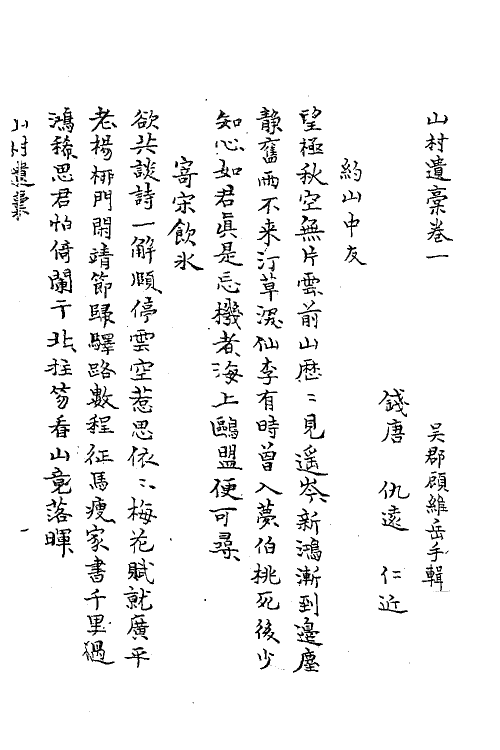 山村遺稾卷一
吳郡顧維岳手輯
錢唐　仇遠　仁近
約山中友
望極秋空無片雲前山歷〻見遙岑新鴻漸到邊塵
静舊雨不来汀草深仙李有時曾入夢伯桃死後少
知心如君眞是忘機者海上鷗盟便可尋
寄宋飲氷
欲共談詩一解頤停雲空惹思依〻梅花賦就廣平
老楊栁門閑靖節歸驛路數程征馬瘦家書千里過
鴻稀思君怕倚闌干北拄笏看山竟落暉
山村遺稾
一